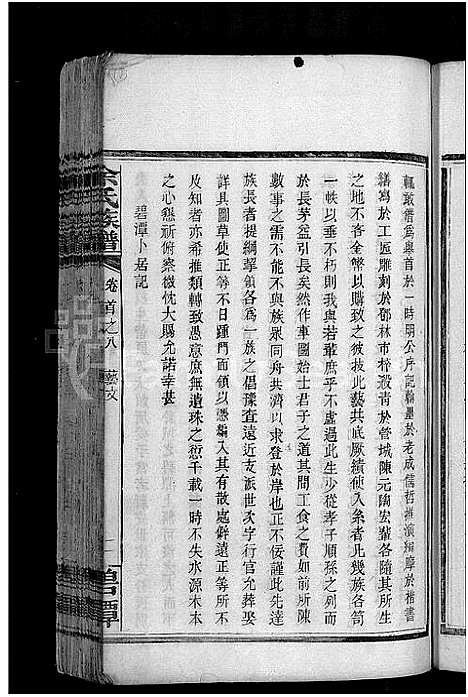 輒敢僭爲舉首於一時明公斤記翰墨於老成信哲推演編摩於楷書
繕寫於工匠雕刻於鄧林市梓殺靑於管城陳元陶宏輩各隨其所生
之地不吝金幣以購致之彼技此藝共底厥績使入糸者凡幾族各笥
一帙以垂不朽則我與若輩庶乎不虛過此生少從孝子順孫之列而
於長茅益引長矣然作車圖始士君子之道其間工食之費如前所陳
數事之需不能不與族衆同舟共濟以求登於岸也正不佞謹此先達
族長者提綱挈領各爲一族之倡彙查遠近支派世次字行官允葬娶
詳具圖草使正等不日踵門而領以憑編入其有散處僻遠正等所不
及知者亦希推類轉致愚意庶無遺珠之愆千載一時不失水源木本
之心懇祈俯察微忱大賜允諾幸甚
碧潭小居記
余氏族譜
卷首之八
藝文
一
碧潭